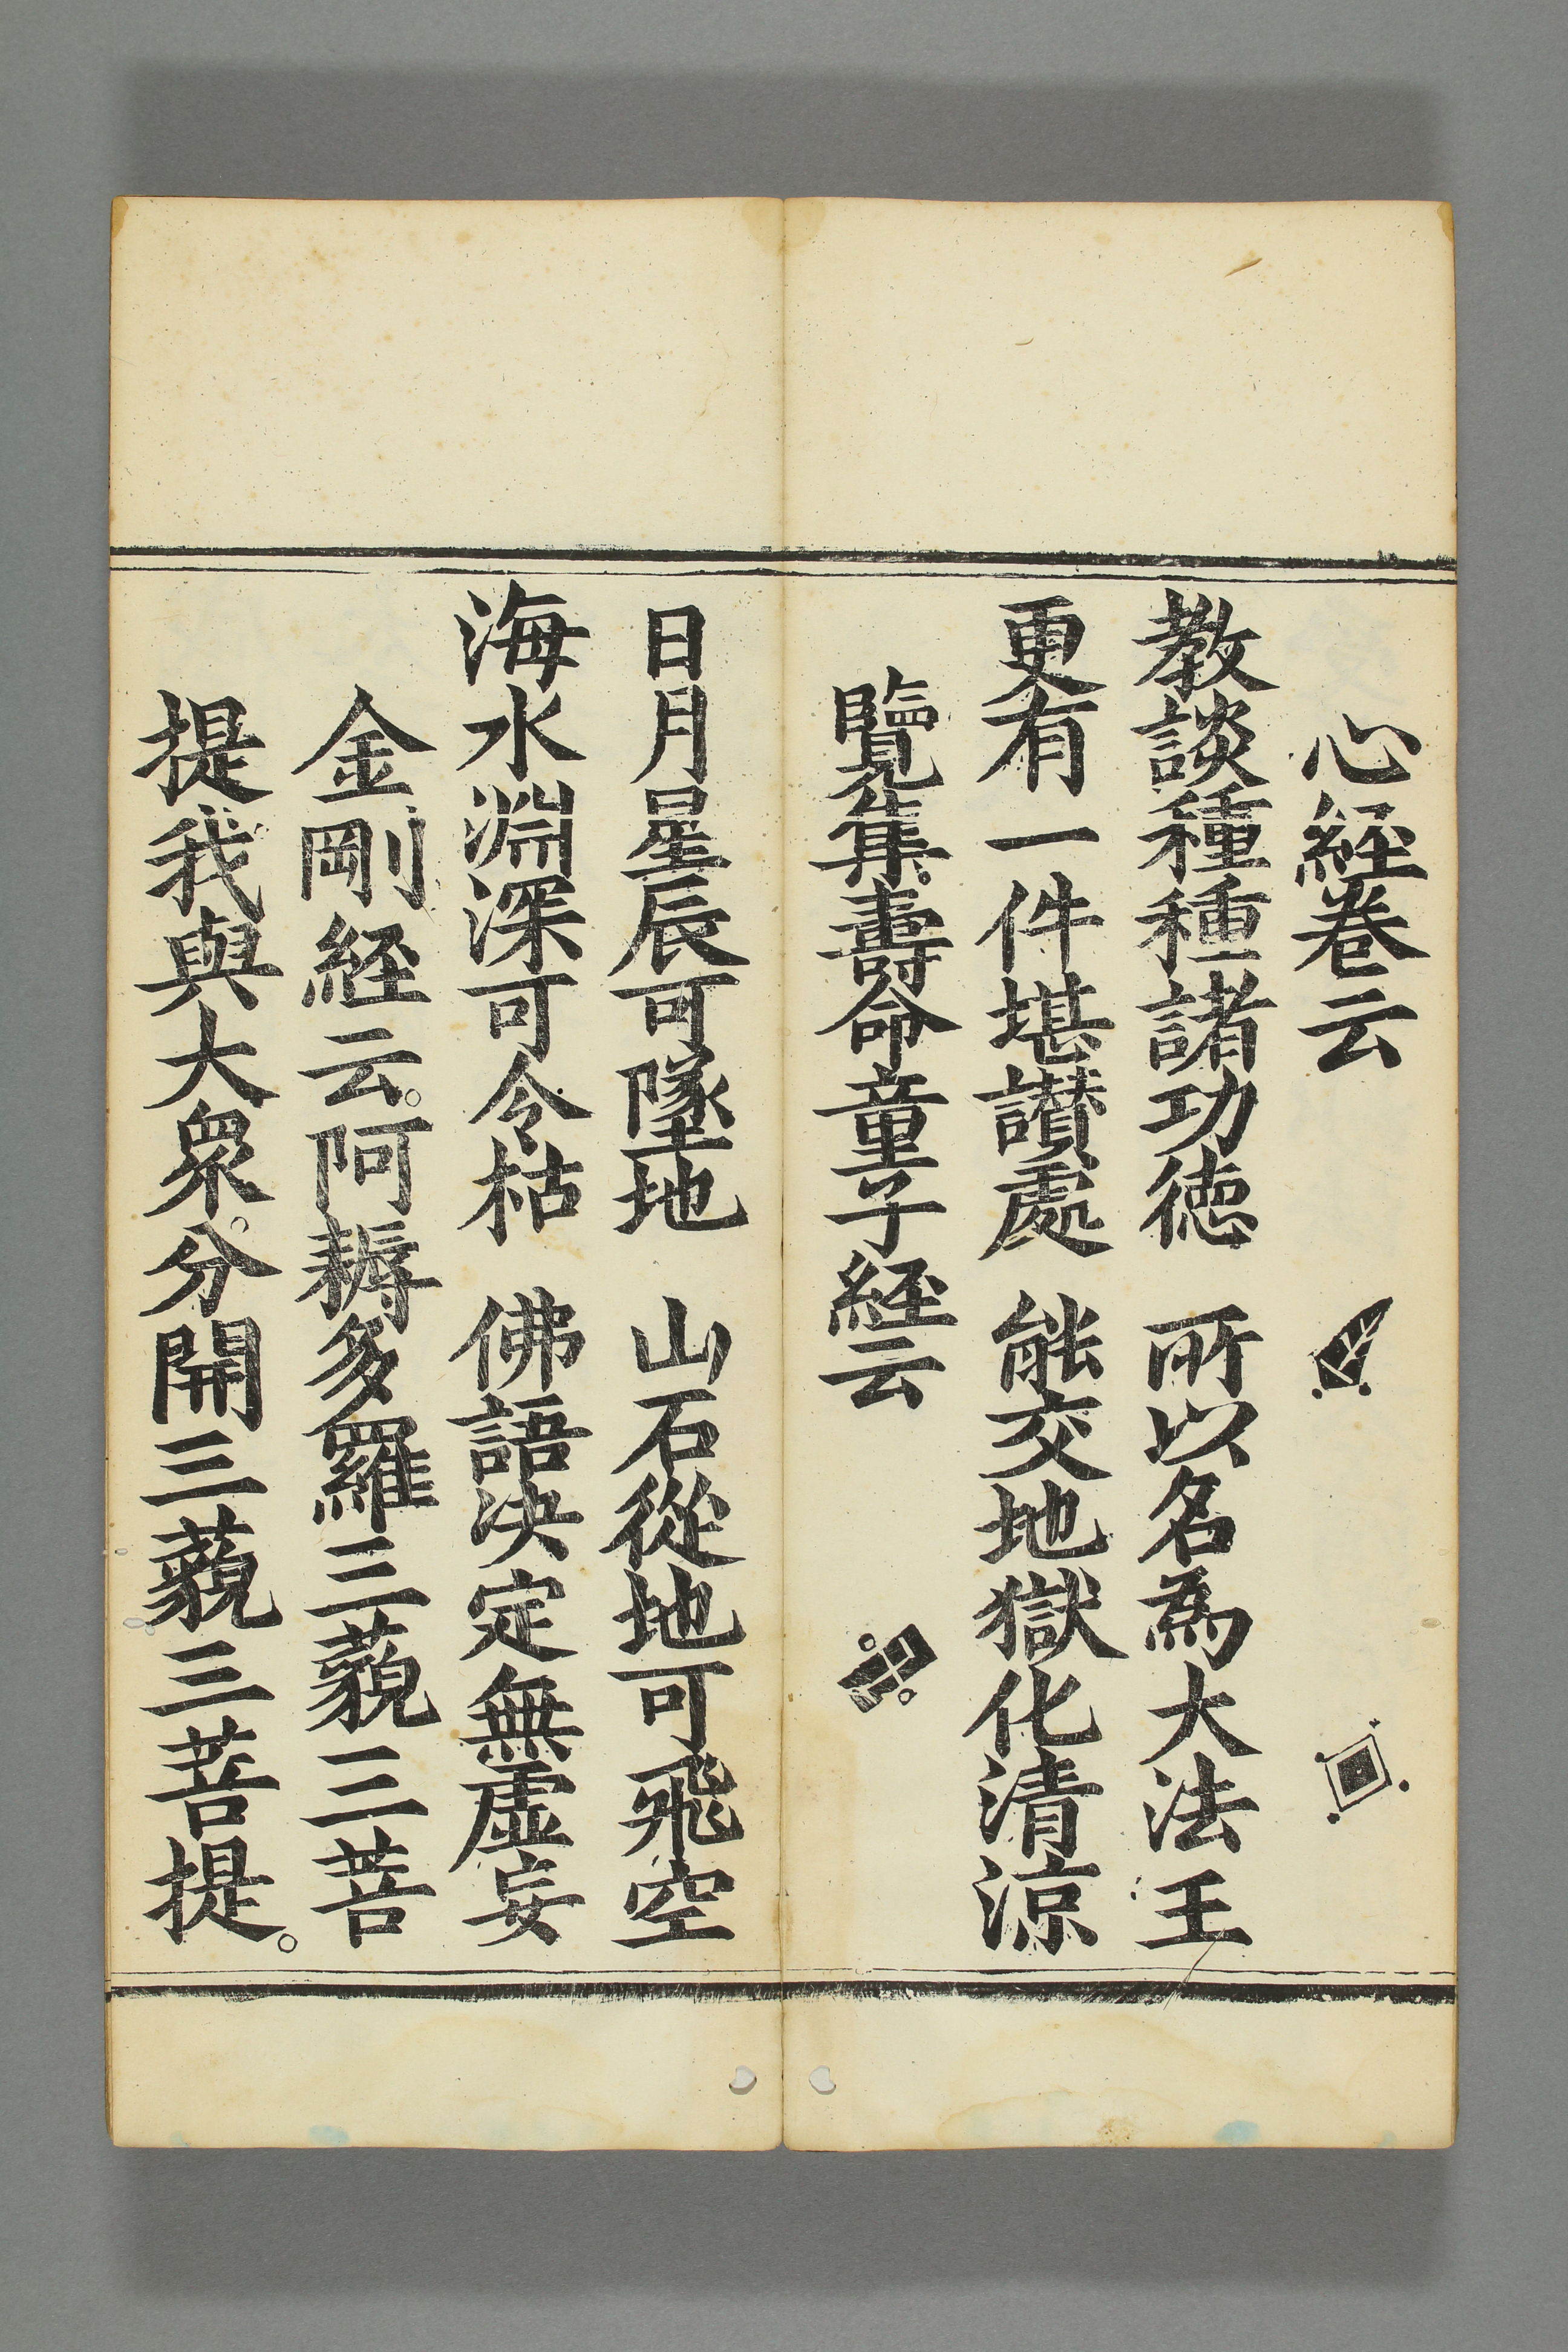 心経巻云
教談種種諸功徳　所以名為大法王
更有一件堪讃處　能交地獄化清涼
覽集壽命童子経云
日月星辰可墜地　山石從地可飛空
海水淵深可令枯　佛語决定無虚妄
金剛経云。阿耨多羅三藐三菩
提我與大衆。分開三藐三菩提。